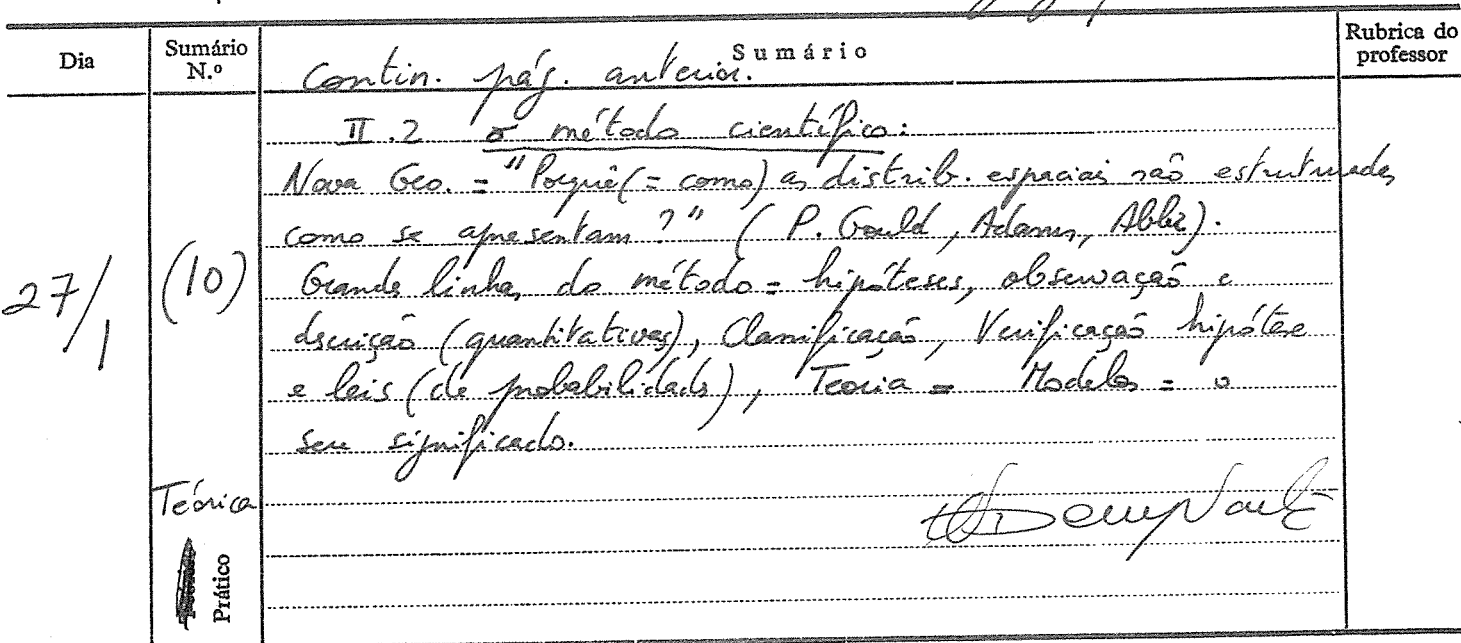 Dia
Sumário N.º
Sumário
Rubrica do professor
Contin. pág. anterior.
II.2 o método científico:
Nova Geo. = "Porquê (= como) as distrib. espaciais são estruturadas
como se apresentam?" (P. Gould, Adams, Abler).
27/1
(10)
Grandes linhas do método = hipóteses, observação e
descrição (quantitativas), Classificação, Verificação hipótese
e leis (de probabilidade), Teoria = Modelos = o
seu significado.
Teórica
Prático